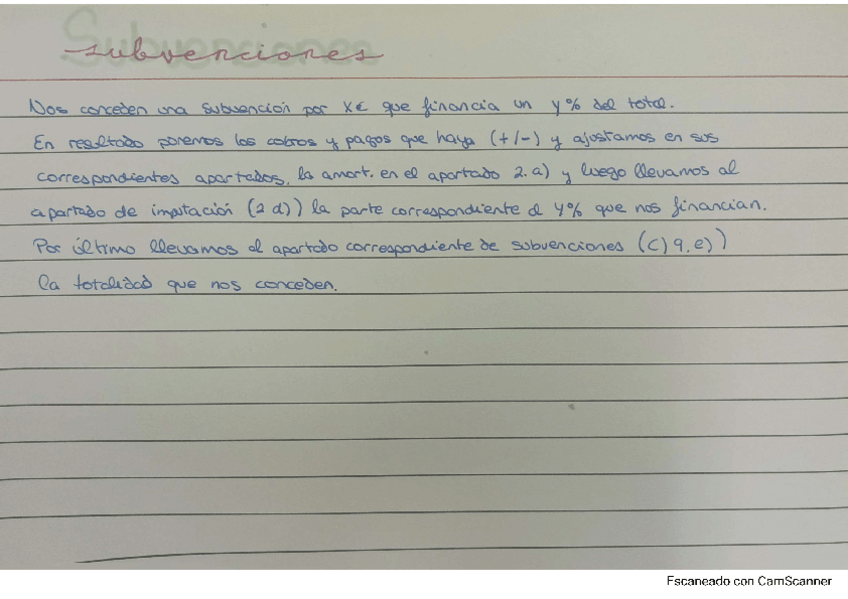 Subvenciones
Nos conceden una subvención por X€ que financia un Y% del total.
En resultado ponemos los cobros y pagos que haya (+/-) y ajustamos en sus
correspondientes apartados, la amort. en el apartado 2.a) y luego llevamos al
apartado de imputación (2 d)) la parte correspondiente al Y% que nos financian.
Por último llevamos al apartado correspondiente de subvenciones (C) 9.e))
la totalidad que nos conceden.
Escaneado con CamScanner